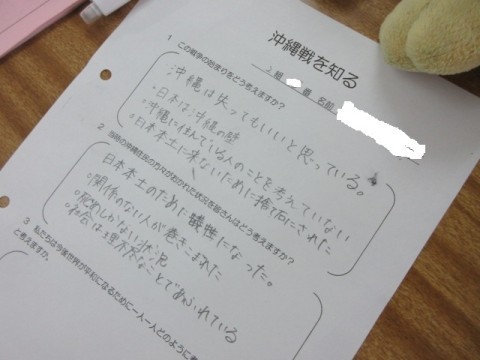 沖縄戦を知る
2 組 番 名前
1 この戦争の始まりをどう考えますか?
沖縄は失ってもいいと思っている。
・日本は沖縄の壁
・沖縄に住んでいる人のことを考えていない
・日本本土に来ないために捨て石にされた
2 当時の沖縄住民の方々がおかれた状況を皆さんはどう考えますか?
日本本土のために犠牲になった。
・関係のない人が巻きこまれた
・脱出しかない状況
・社会は理不尽なことであふれている
3 私たちは今後世界が平和になるために一人一人どのように
と考えますか。